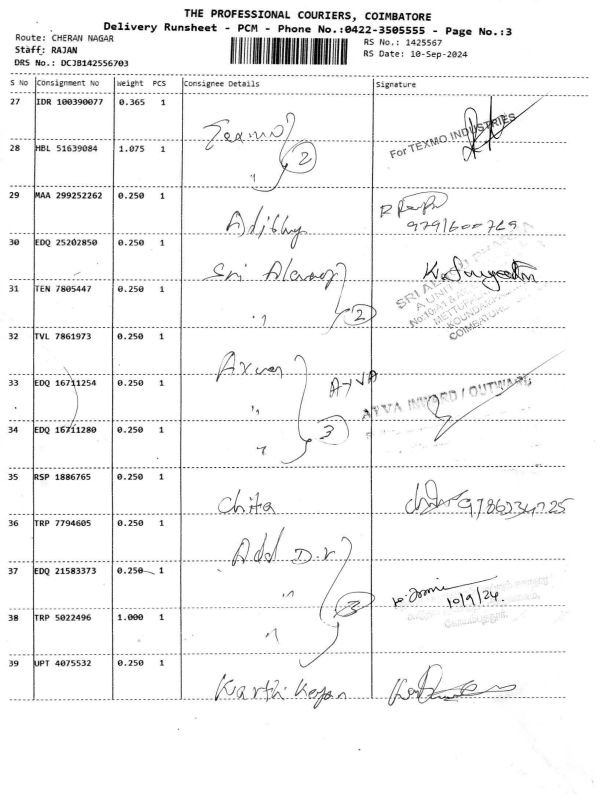 THE PROFESSIONAL COURIERS, COIMBATORE
Delivery Runsheet - PCM - Phone No.:0422-3505555 - Page No.:3
Route: CHERAN NAGAR
Staff: RAJAN
DRS No.: DCJB142556703
RS No.: 1425567
RS Date: 10-Sep-2024
S No Consignment No Weight PCS Consignee Details Signature
27 IDR 100390077 0.365 1 Texmo
For TEXMO INDUSTRIES
28 HBL 51639084 1.075 1 " 2
29 MAA 299252262 0.250 1
30 EDQ 25202850 0.250 1 Sri
31 TEN 7805447 0.250 1 " 2
COIMBATORE
32 TVL 7861973 0.250 1
AYVA
33 EDQ 16711254 0.250 1 "
AYVA INWORD / OUTWARD
34 EDQ 16711280 0.250 1 " 3
35 RSP 1886765 0.250 1 Chita
36 TRP 7794605 0.250 1 Add
37 EDQ 21583373 0.250 1 " 10/9/24.
38 TRP 5022496 1.000 1 " 3
39 UPT 4075532 0.250 1 Karthikeyan